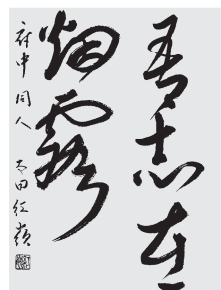 吾志在
烟霞
府中 同人 太田紅嶺